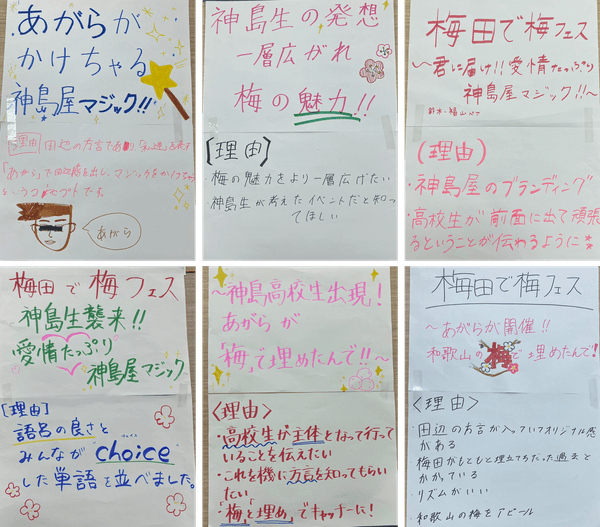 あがらが
かけちゃる
神島屋マジック!!
理由
田辺の方言であり、私達を表す
「あがら」で田辺感を出し、マジックをかけちゃる
というコンセプトです。
あがら
神島生の発想
一層広がれ
梅の魅力!!
【理由】
・梅の魅力をより一層広げたい
・神島生が考えたイベントだと知っ
てほしい
梅田で梅フェス
〜君に届け!!愛情たっぷり
神島屋マジック!!〜
鈴木・福山
(理由)
・神島屋のブランディング
・高校生が前面に出て頑張
るということが伝わるように!
梅田で梅フェス
神島生襲来!!
愛情たっぷり
神島屋マジック
[理由]
語呂の良さと
みんながchoice
した単語を並べました。
〜神島高校生出現!
あがらが
「梅」で埋めたんで!!〜
<理由>
・高校生が主体となって行って
いることを伝えたい
・これを機に方言を知ってもらい
たい
・「梅」と「埋め」でキャッチーに!
梅田で梅フェス
〜あがらが開催!!
和歌山の梅で埋めたんで!
<理由>
・田辺の方言が入っていてオリジナル感
がある
・梅田がもともと埋立ちだった過去と
かかっている
・リズムがいい
・和歌山の梅をアピール